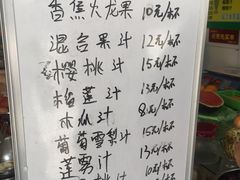 香蕉火龙果 10元/杯
混合果汁 12元/杯
樱桃汁 15元/杯
榴莲汁 13元/杯
木瓜汁 8元/杯
葡萄雪梨汁 15元/杯
莲雾汁 13元/杯
桃汁 10元/杯